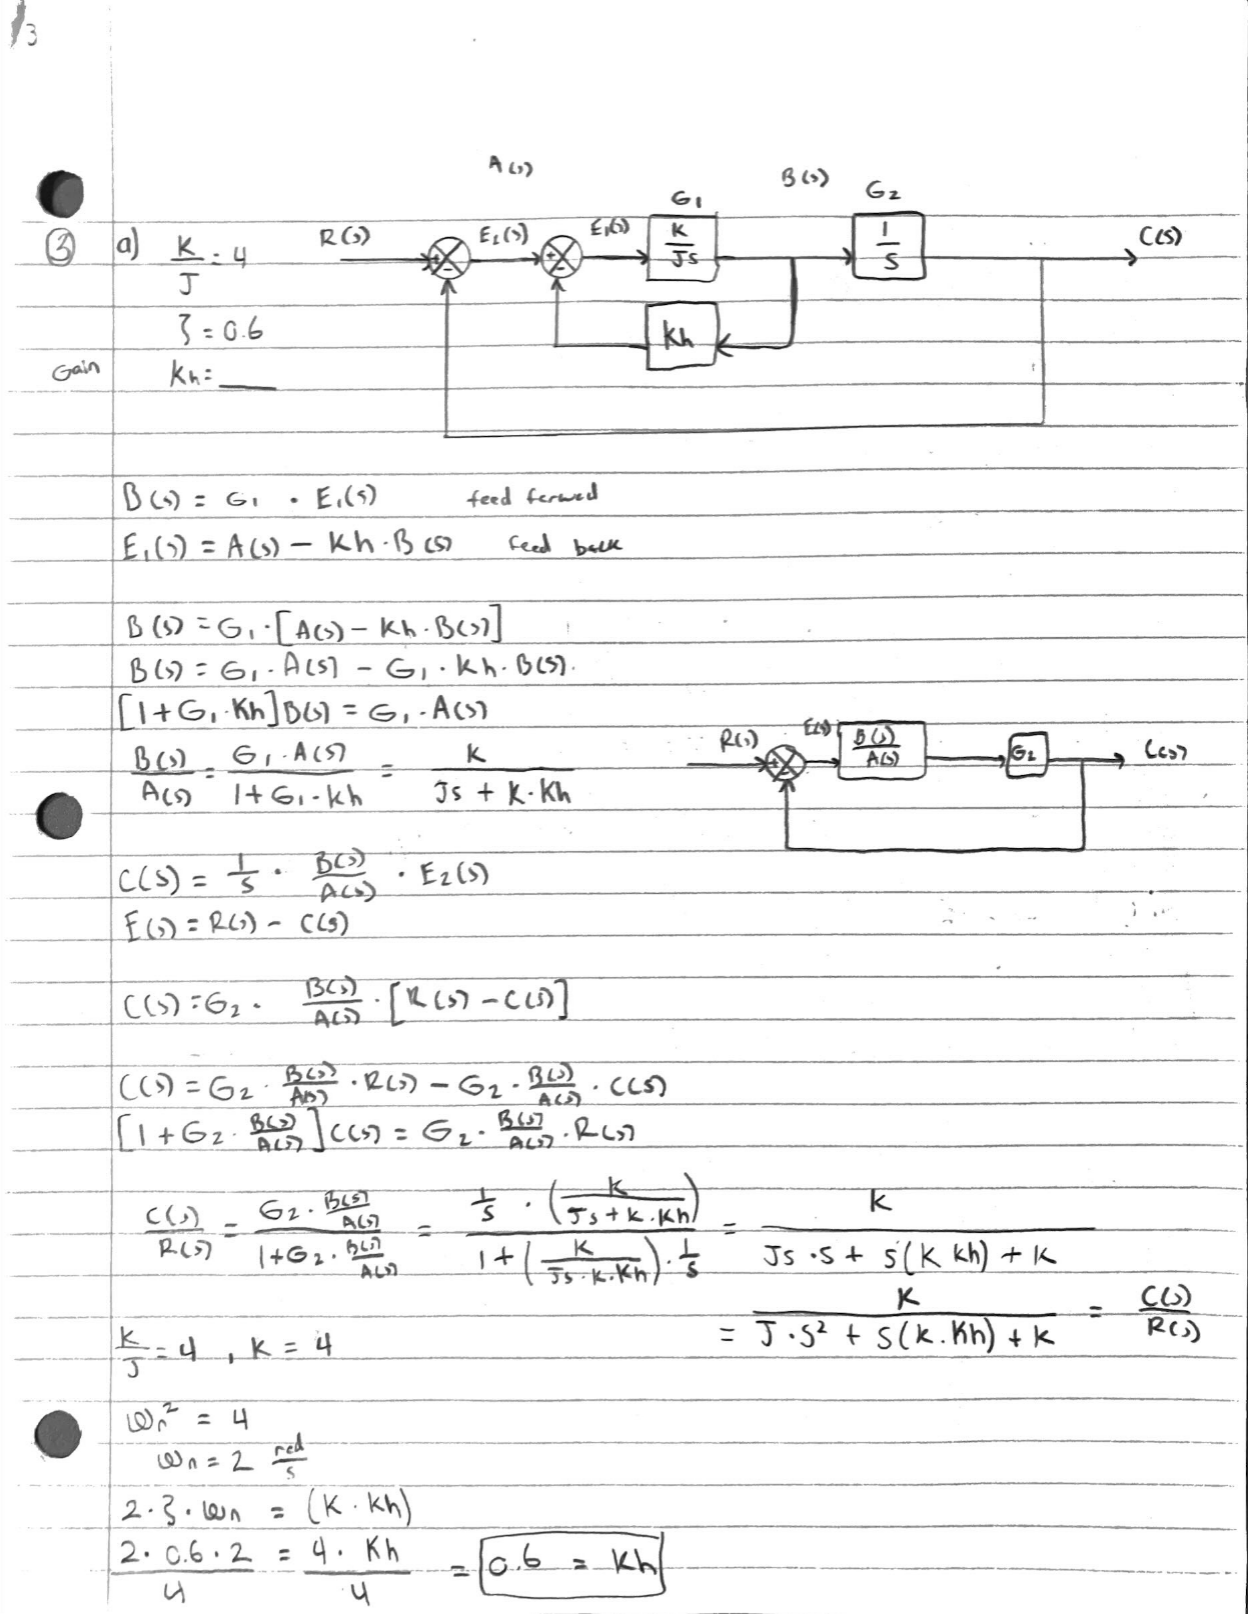 3
A(s) B(s)
G1 G2
③ a) K/J = 4 R(s) E2(s) E1(s) K/Js 1/s C(s)
ζ = 0.6 Kh
Gain Kh = ___
B(s) = G1 · E1(s) feed forward
E1(s) = A(s) − Kh · B(s) feed back
B(s) = G1 · [A(s) − Kh · B(s)]
B(s) = G1 · A(s) − G1 · Kh · B(s).
[1 + G1 · Kh] B(s) = G1 · A(s)
B(s)/A(s) = G1 · A(s) / 1 + G1 · Kh = K / Js + K · Kh
R(s) E(s) B(s)/A(s) G2 C(s)
C(s) = 1/s · B(s)/A(s) · E2(s)
E(s) = R(s) − C(s)
C(s) = G2 · B(s)/A(s) · [R(s) − C(s)]
C(s) = G2 · B(s)/A(s) · R(s) − G2 · B(s)/A(s) · C(s)
[1 + G2 · B(s)/A(s)] C(s) = G2 · B(s)/A(s) · R(s)
C(s)/R(s) = G2 · B(s)/A(s) / 1 + G2 · B(s)/A(s) = 1/s · (K / Js + K · Kh) / 1 + (K / Js · K · Kh) · 1/s = K / Js · s + s(K Kh) + K
= K / J · s² + s(K · Kh) + K = C(s)/R(s)
K/J = 4 , K = 4
ωn² = 4
ωn = 2 rad/s
2 · ζ · ωn = (K · Kh)
2 · 0.6 · 2 / 4 = 4 · Kh / 4 = 0.6 = Kh